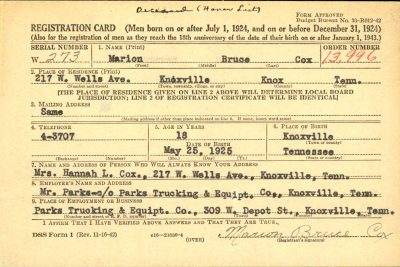 Deceased (Honor List)
FORM APPROVED
Budget Bureau No. 33-R012-42
REGISTRATION CARD (Men born on or after July 1, 1924, and on or before December 31, 1924)
(Also for the registration of men as they reach the 18th anniversary of the date of their birth on or after January 1, 1943.)
SERIAL NUMBER 1. NAME (Print) ORDER NUMBER
W 273 Marion Bruce Cox 13,996
(First) (Middle) (Last)
2. PLACE OF RESIDENCE (Print)
217 W. Wells Ave. Knoxville Knox Tenn.
(Number and street) (Town, township, village, or city) (County) (State)
[THE PLACE OF RESIDENCE GIVEN ON LINE 2 ABOVE WILL DETERMINE LOCAL BOARD
JURISDICTION; LINE 2 OF REGISTRATION CERTIFICATE WILL BE IDENTICAL]
3. MAILING ADDRESS
Same
[Mailing address if other than place indicated on line 2. If same, insert word same]
4. TELEPHONE 5. AGE IN YEARS 6. PLACE OF BIRTH
4-3707 18 Knoxville
DATE OF BIRTH (Town or county)
May 25, 1925 Tennessee
(Mo.) (Day) (Yr.) (State or country)
7. NAME AND ADDRESS OF PERSON WHO WILL ALWAYS KNOW YOUR ADDRESS
Mrs. Hannah L. Cox, 217 W. Wells Ave., Knoxville, Tenn.
8. EMPLOYER'S NAME AND ADDRESS
Mr. Parks-c/o Parks Trucking & Equipt. Co., Knoxville, Tenn.
9. PLACE OF EMPLOYMENT OR BUSINESS
Parks Trucking & Equipt. Co., 309 W. Depot St., Knoxville, Tenn.
(Number and street or R. F. D. number) (Town) (County) (State)
I AFFIRM THAT I HAVE VERIFIED ABOVE ANSWERS AND THAT THEY ARE TRUE.
DSS Form 1 (Rev. 11-16-42) (OVER) Marion Bruce Cox
(Registrant's signature)